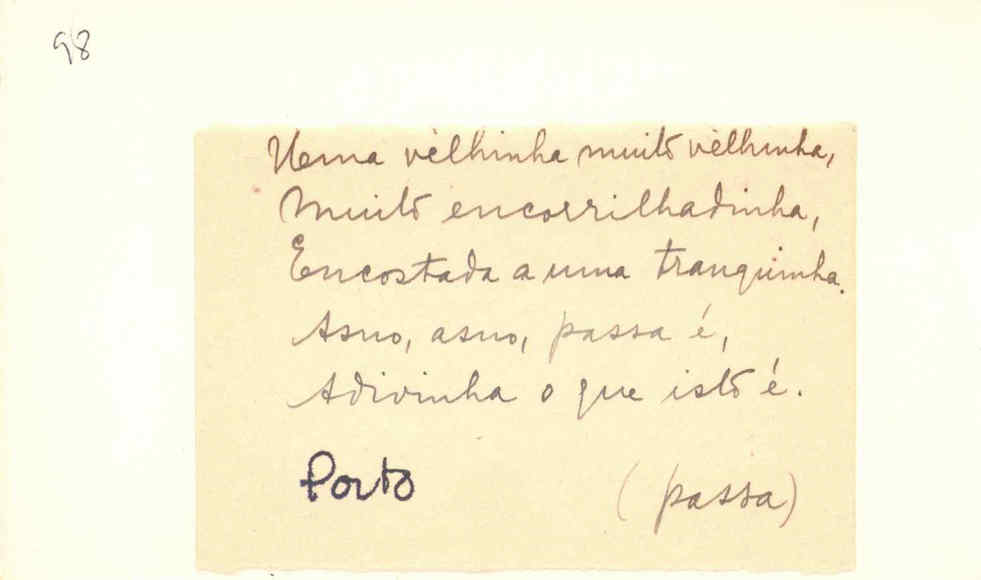 98
Uma vèlhinha muito vèlhinha,
Muito encorrilhadinha,
Encostada a uma tranquinha.
Asno, asno, passa é,
Adivinha o que isto é.
Porto
(passa)